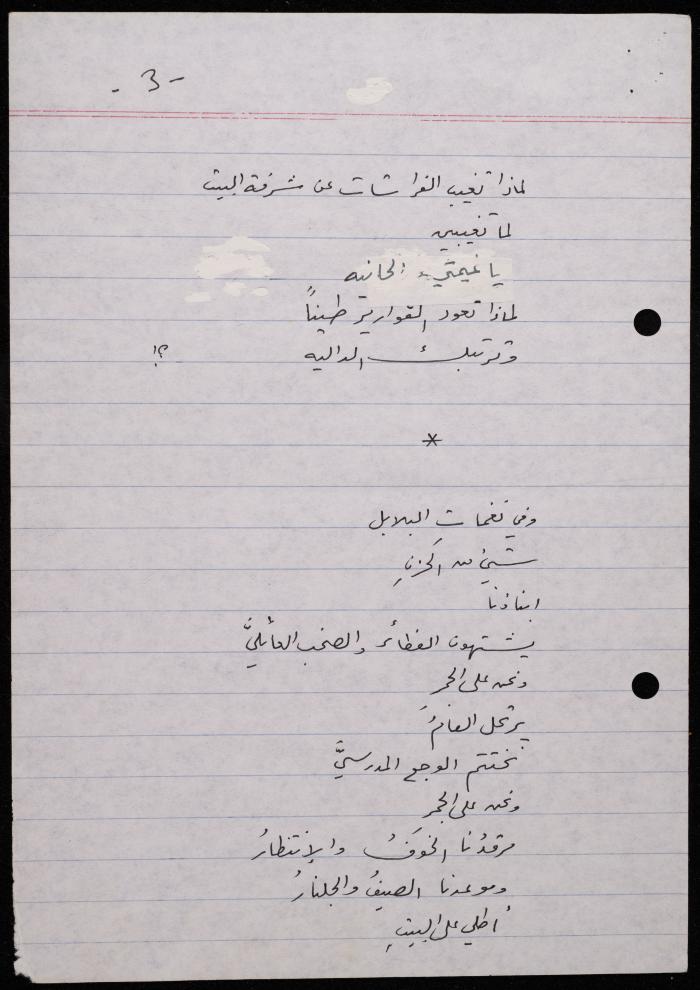 - 3 -
لماذا تغيب الفراشات عن شرفة البيت
لما تغيبين
يا غيمتي الحانيه
لماذا تعود القوارير طيناً
وترتبك الداليه ؟!
*
وفي نغمات البلابل
شيئ من الحزنِ
ابناؤنا
يشتهون الفطائر والصخب العائليَّ
ونحن على الجمر
يرتحل العامُ
نختتم الوجع المدرسيَّ
ونحن على الجمر
مرقدُنا الخوفُ والإنتظارُ
وموعدنا الصيفُ والجلنارُ
أطلي على البيتِ